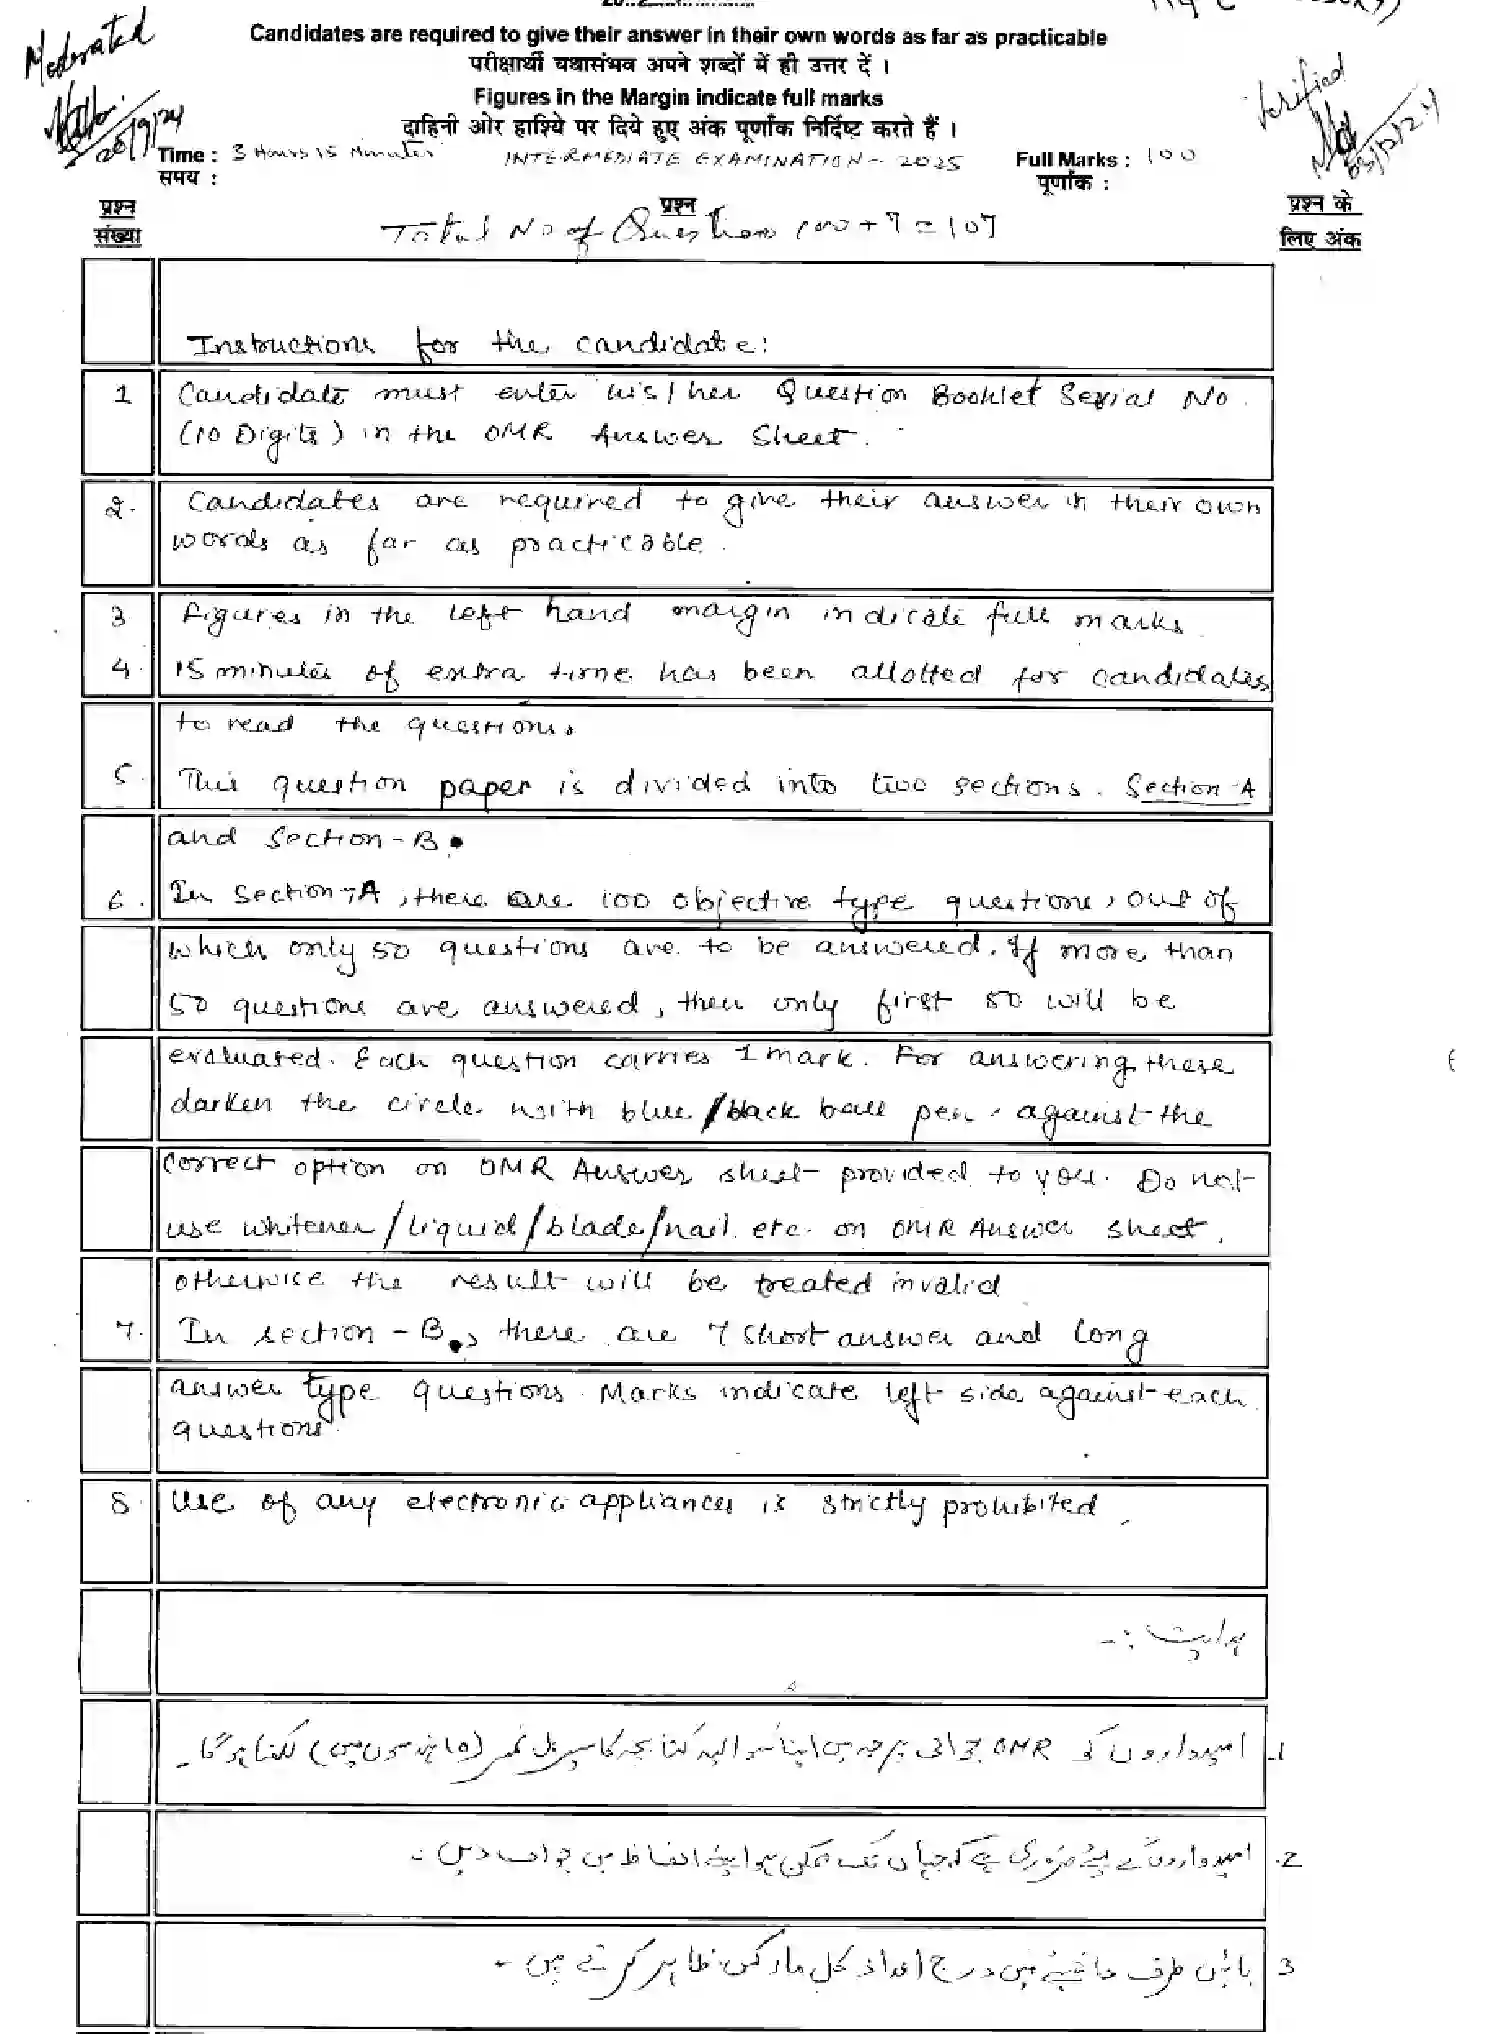 Candidates are required to give their answer in their own words as far as practicable
Moderated
परीक्षार्थी यथासंभव अपने शब्दों में ही उत्तर दें ।
Verified
Figures in the Margin indicate full marks
दाहिनी ओर हाशिये पर दिये हुए अंक पूर्णांक निर्दिष्ट करते हैं ।
Time : 3 Hours 15 Minutes INTERMEDIATE EXAMINATION - 2025 Full Marks : 100
समय : पूर्णांक :
प्रश्न संख्या प्रश्न प्रश्न के लिए अंक
Total No of Questions 100 + 7 = 107
Instructions for the candidate:
1 Candidate must enter his/her Question Booklet Serial No.
(10 Digits) in the OMR Answer Sheet.
2. Candidates are required to give their answer in their own
words as far as practicable.
3 Figures in the left hand margin indicate full marks
4. 15 minutes of extra time has been allotted for candidates
to read the questions.
5. This question paper is divided into two sections. Section-A
and Section-B.
6. In Section-A, there are 100 objective type questions, out of
which only 50 questions are to be answered. If more than
50 questions are answered, then only first 50 will be
evaluated. Each question carries 1 mark. For answering these
darken the circle with blue/black ball pen against the
correct option on OMR Answer sheet provided to you. Do not
use whitener/liquid/blade/nail etc. on OMR Answer sheet,
otherwise the result will be treated invalid
7. In section-B, there are 7 short answer and long
answer type questions. Marks indicate left side against each
questions.
8. Use of any electronic appliances is strictly prohibited.
ہدایت :-
1. امیدواروں کو OMR جوابی پرچہ میں اپنا سوالیہ کتابچہ کا سیریل نمبر (۱۵ ہندسوں میں) لکھنا ہوگا۔
2. امیدواروں کے لیے ضروری ہے کہ جہاں تک ممکن ہو اپنے الفاظ میں جواب دیں ۔
3 بائیں طرف حاشیے میں درج اعداد کل مارکس ظاہر کرتے ہیں ۔